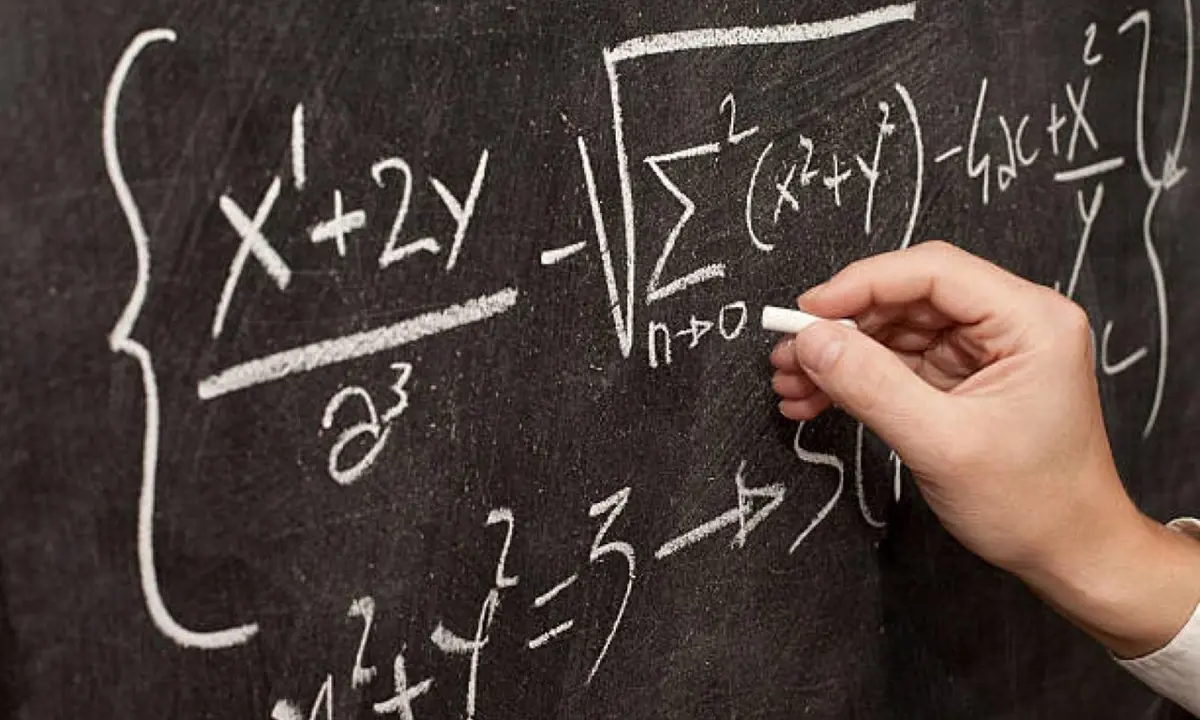 { (x¹ + 2y) / a³ - √ ∑ n→0 ² (x² + y²) - 4x + x² / y }
² + y² = 3 →